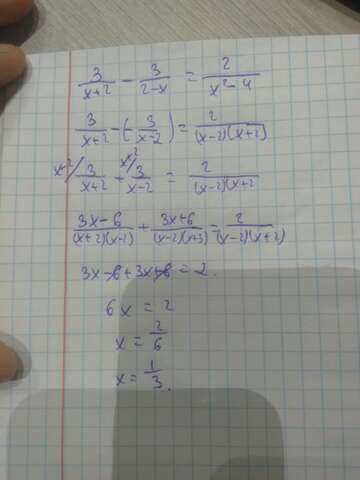 3/(x+2) - 3/(2-x) = 2/(x²-4)
3/(x+2) - (-3/(x-2)) = 2/((x-2)(x+2))
x-2/ 3/(x+2) + x+2/ 3/(x-2) = 2/((x-2)(x+2
(3x-6)/((x+2)(x-2)) + (3x+6)/((x-2)(x+2)) = 2/((x-2)(x+2))
3x-6+3x+6=2.
6x = 2
x = 2/6
x = 1/3.